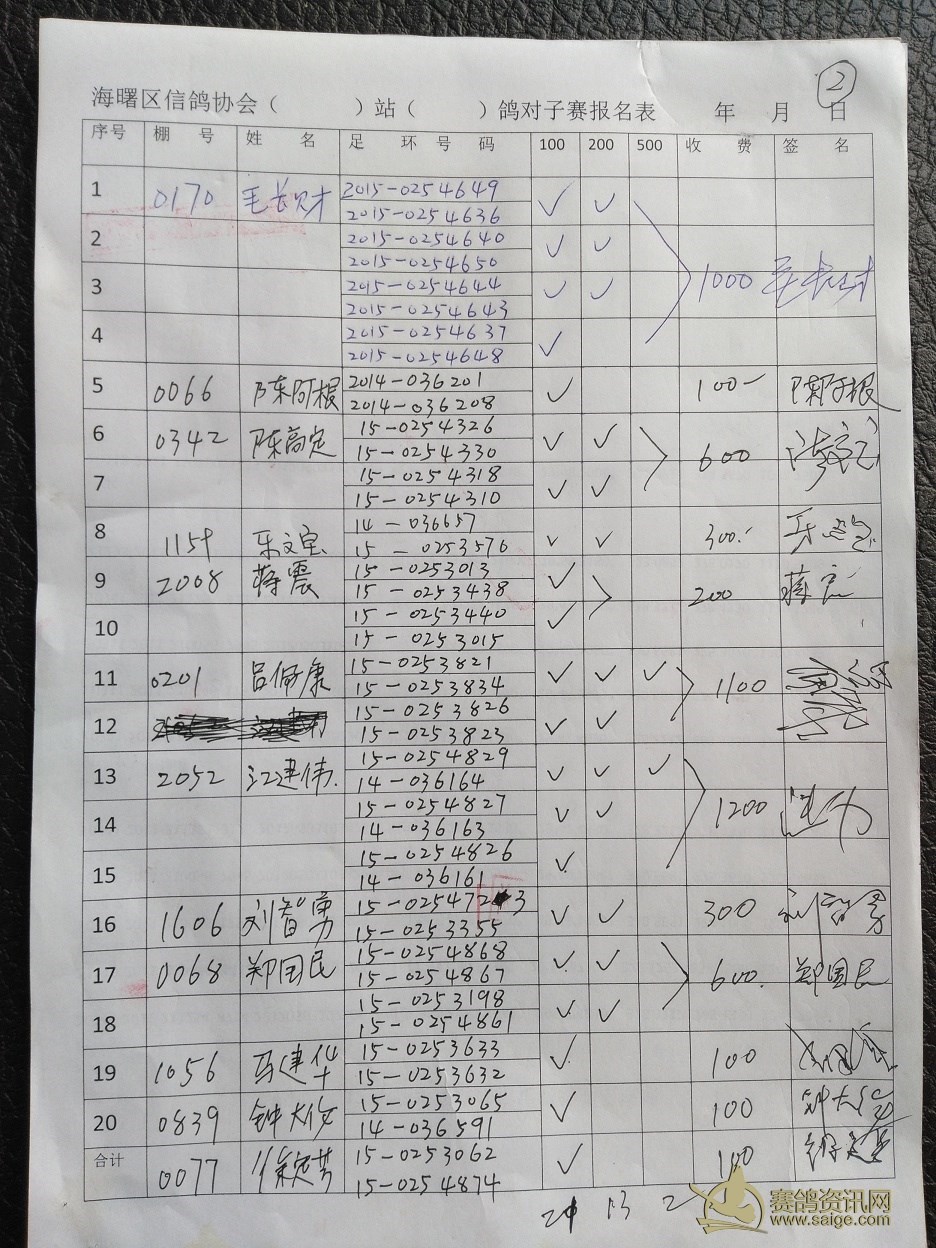 ②
海曙区信鸽协会（ ）站（ ）鸽对子赛报名表 年 月 日
序号 棚 号 姓 名 足 环 号 码 100 200 500 收 费 签 名
1 0170 毛长财 2015-0254649 ✓ ✓
2015-0254636
2 2015-0254640 ✓ ✓
2015-0254650 1000 毛长财
3 2015-0254644 ✓ ✓
2015-0254643
4 2015-0254637 ✓
2015-0254648
5 0066 陈阿根 2014-036201 ✓ 100- 陈阿根
2014-036208
6 0342 陈高定 15-0254326 ✓ ✓ 600
15-0254330
7 15-0254318 ✓ ✓
15-0254310
8 1159 乐文宝 14-036657 ✓ ✓ 300.-
15-0253576
9 2008 蒋震 15-0253013 ✓ 200 蒋震
15-0253438
10 15-0253440 ✓
15-0253015
11 0201 吕佩康 15-0253821 ✓ ✓ ✓ 1100
15-0253834
12 15-0253826 ✓ ✓
15-0253823
13 2052 江建伟 15-0254829 ✓ ✓ ✓
14-036164
14 15-0254827 ✓ ✓ 1200
14-036163
15 15-0254826 ✓
14-036161
16 1606 刘智勇 15-0254723 ✓ ✓ 300 刘智勇
15-0253355
17 0068 郑国民 15-0254868 ✓ ✓ 600. 郑国民
15-0254867
18 15-0253198 ✓ ✓
15-0254861
19 1056 马建华 15-0253633 ✓ 100
15-0253632
20 0839 钟大仪 15-0253065 ✓ 100
14-036591
合计 0077 徐定芳 15-0253062 ✓ 100
15-0254874
13 2
赛鸽资讯网
www.saige.com